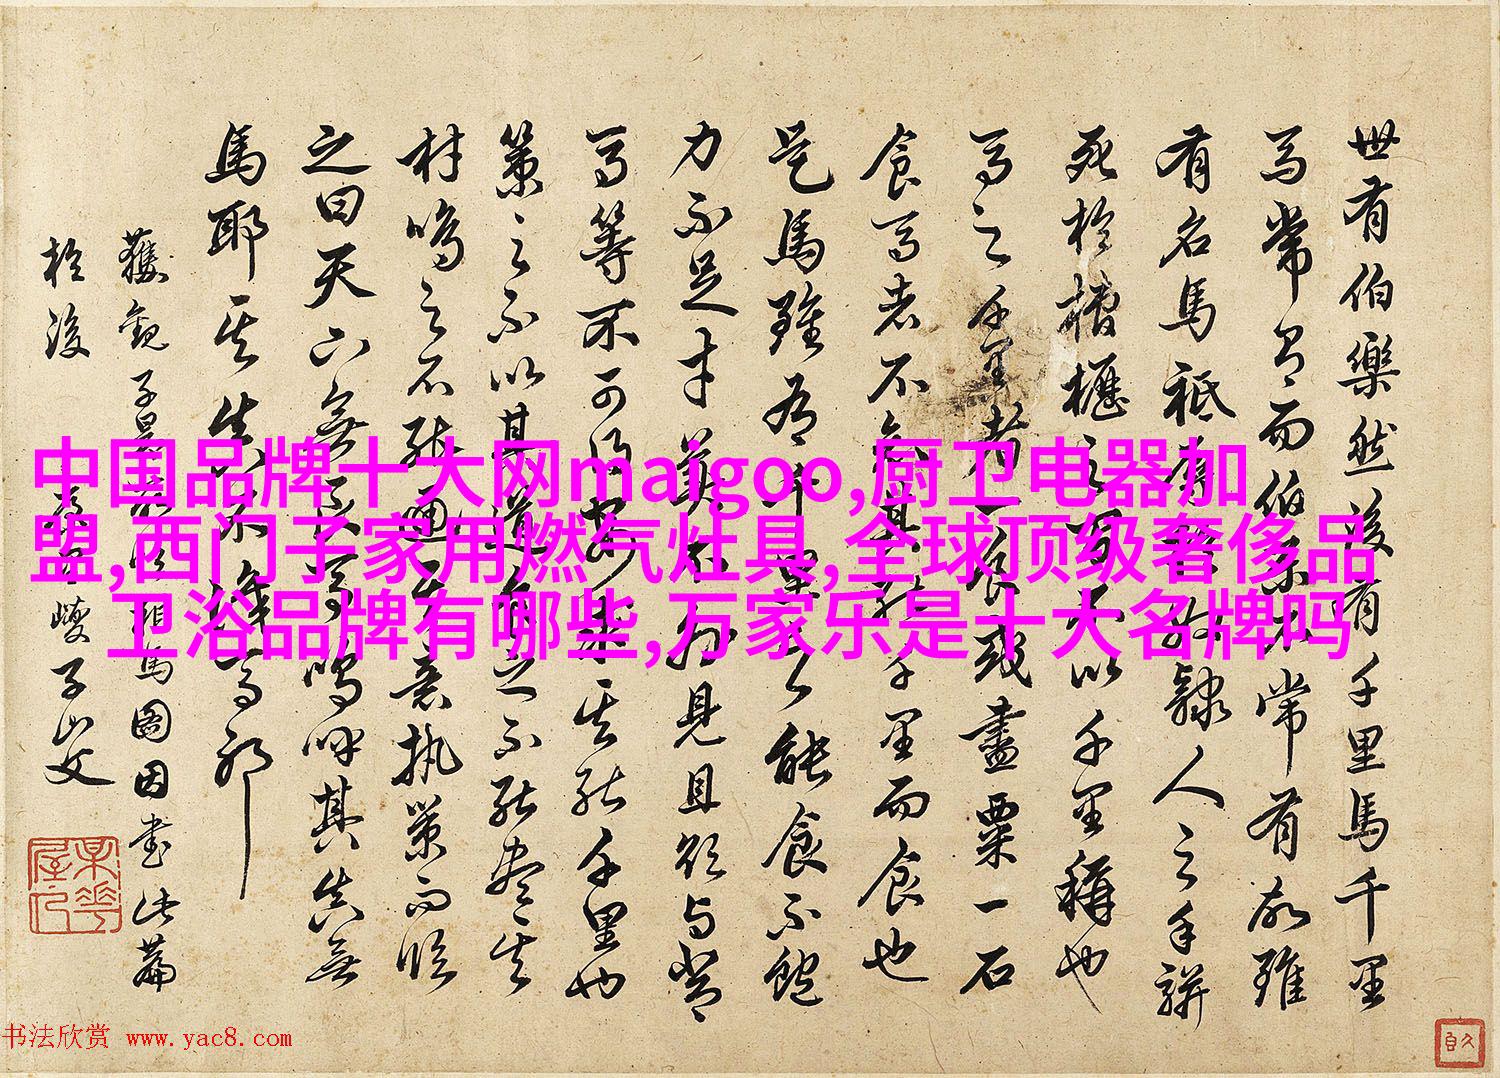 世有伯樂然後有千里馬千里
馬常有而伯樂不常有故雖
有名馬祗辱於隸人之手駢
死於槽櫪之間不以千里稱也
馬之千里者一食或盡粟一石
食馬者不知其能千里而食也
是馬雖有千里之能食不飽
力不足才美不外見且欲與常
馬等不可得安求其能千里也
策之不以其道食之不能盡其
材鳴之不能通其意執策而臨
之曰天下無馬嗚呼其真無
馬耶其真不識馬耶
獲觀子昂
馬圖因書此篇
於後
子山父
中国品牌十大网maigoo,厨卫电器加
盟,西门子家用燃气灶具,全球顶级奢侈品
卫浴品牌有哪些,万家乐是十大名牌吗
书法欣赏 www.yac8.com